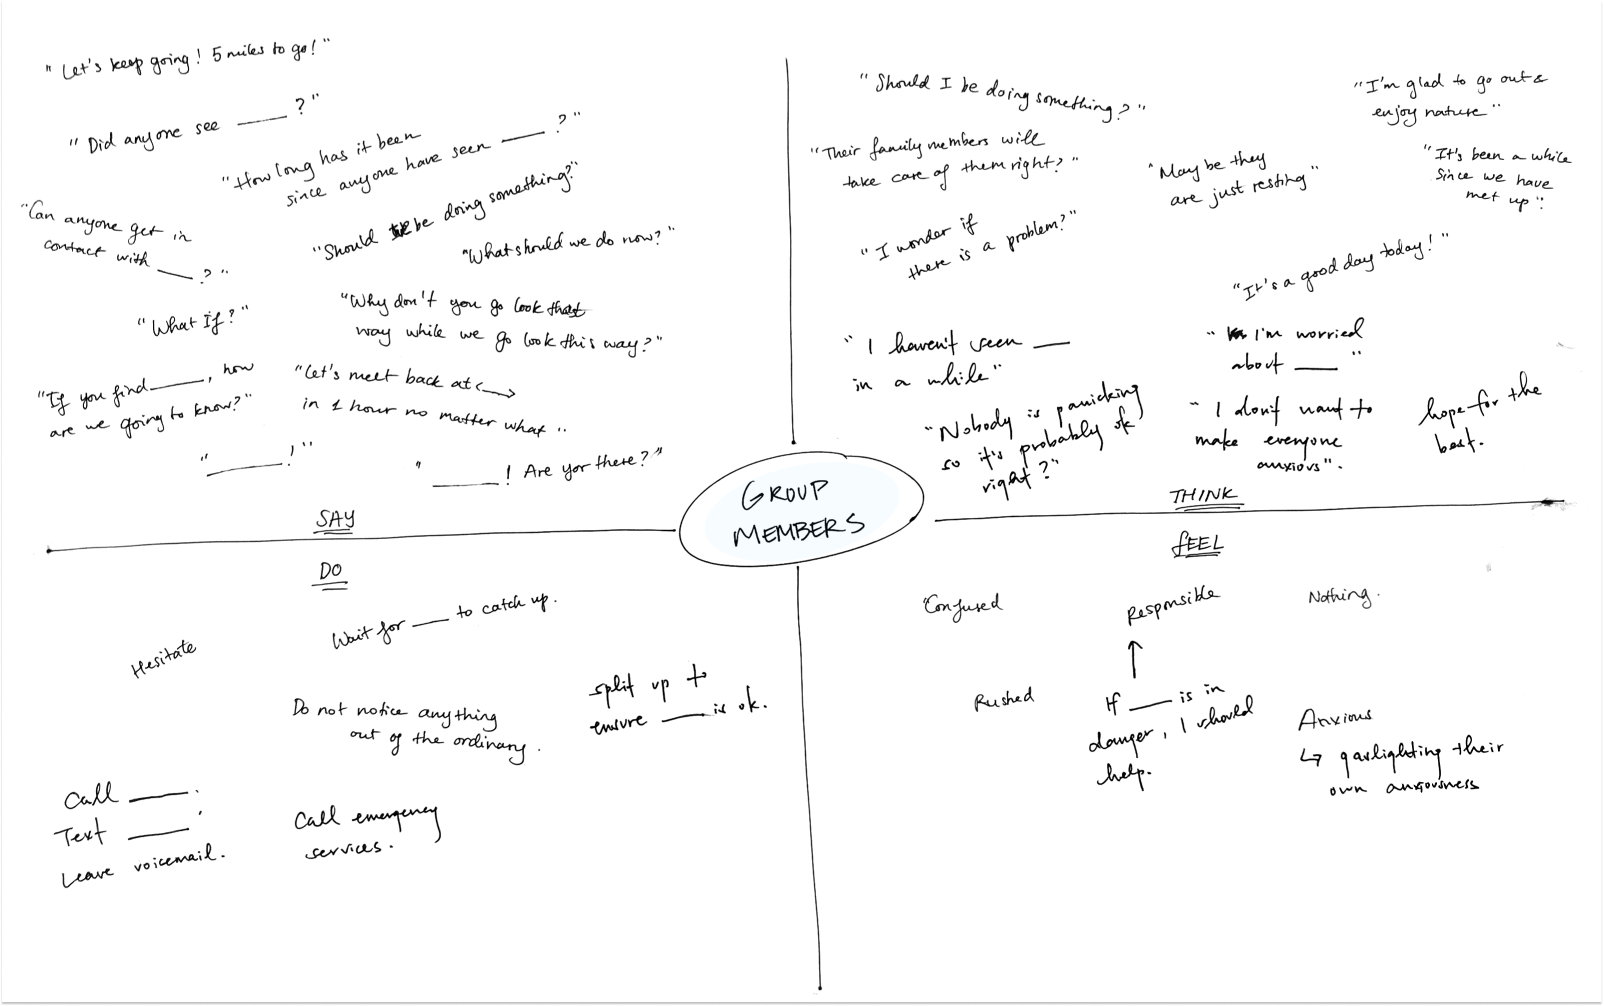 "Let's keep going! 5 miles to go!"
"Did anyone see ____?"
"How long has it been
since anyone have seen ____?"
"Can anyone get in
contact with ____?"
"Should we be doing something?"
"What should we do now?"
"What If?"
"Why don't you go look that
way while we go look this way?"
"If you find ____, how
are we going to know?"
"Let's meet back at <__>
in 1 hour no matter what"
"____!"
"____! Are you there?"
SAY
"Should I be doing something?"
"I'm glad to go out &
enjoy nature"
"Their family members will
take care of them right?"
"Maybe they
are just resting"
"It's been a while
since we have
met up".
"I wonder if
there is a problem?"
"It's a good day today!"
"I haven't seen ____
in a while"
"I'm worried
about ____"
"Nobody is panicking
so it's probably ok
right?"
"I don't want to
make everyone
anxious".
hope for the
best.
THINK
GROUP
MEMBERS
DO
Hesitate
Wait for ____ to catch up.
Do not notice anything
out of the ordinary.
split up to
ensure ____ is ok.
Call ____.
Text ____.
Leave voicemail.
Call emergency
services.
FEEL
"Confused
Responsible
Nothing.
Rushed
If ____ is in
danger, I should
help.
Anxious
↳ gaslighting their
own anxiousness